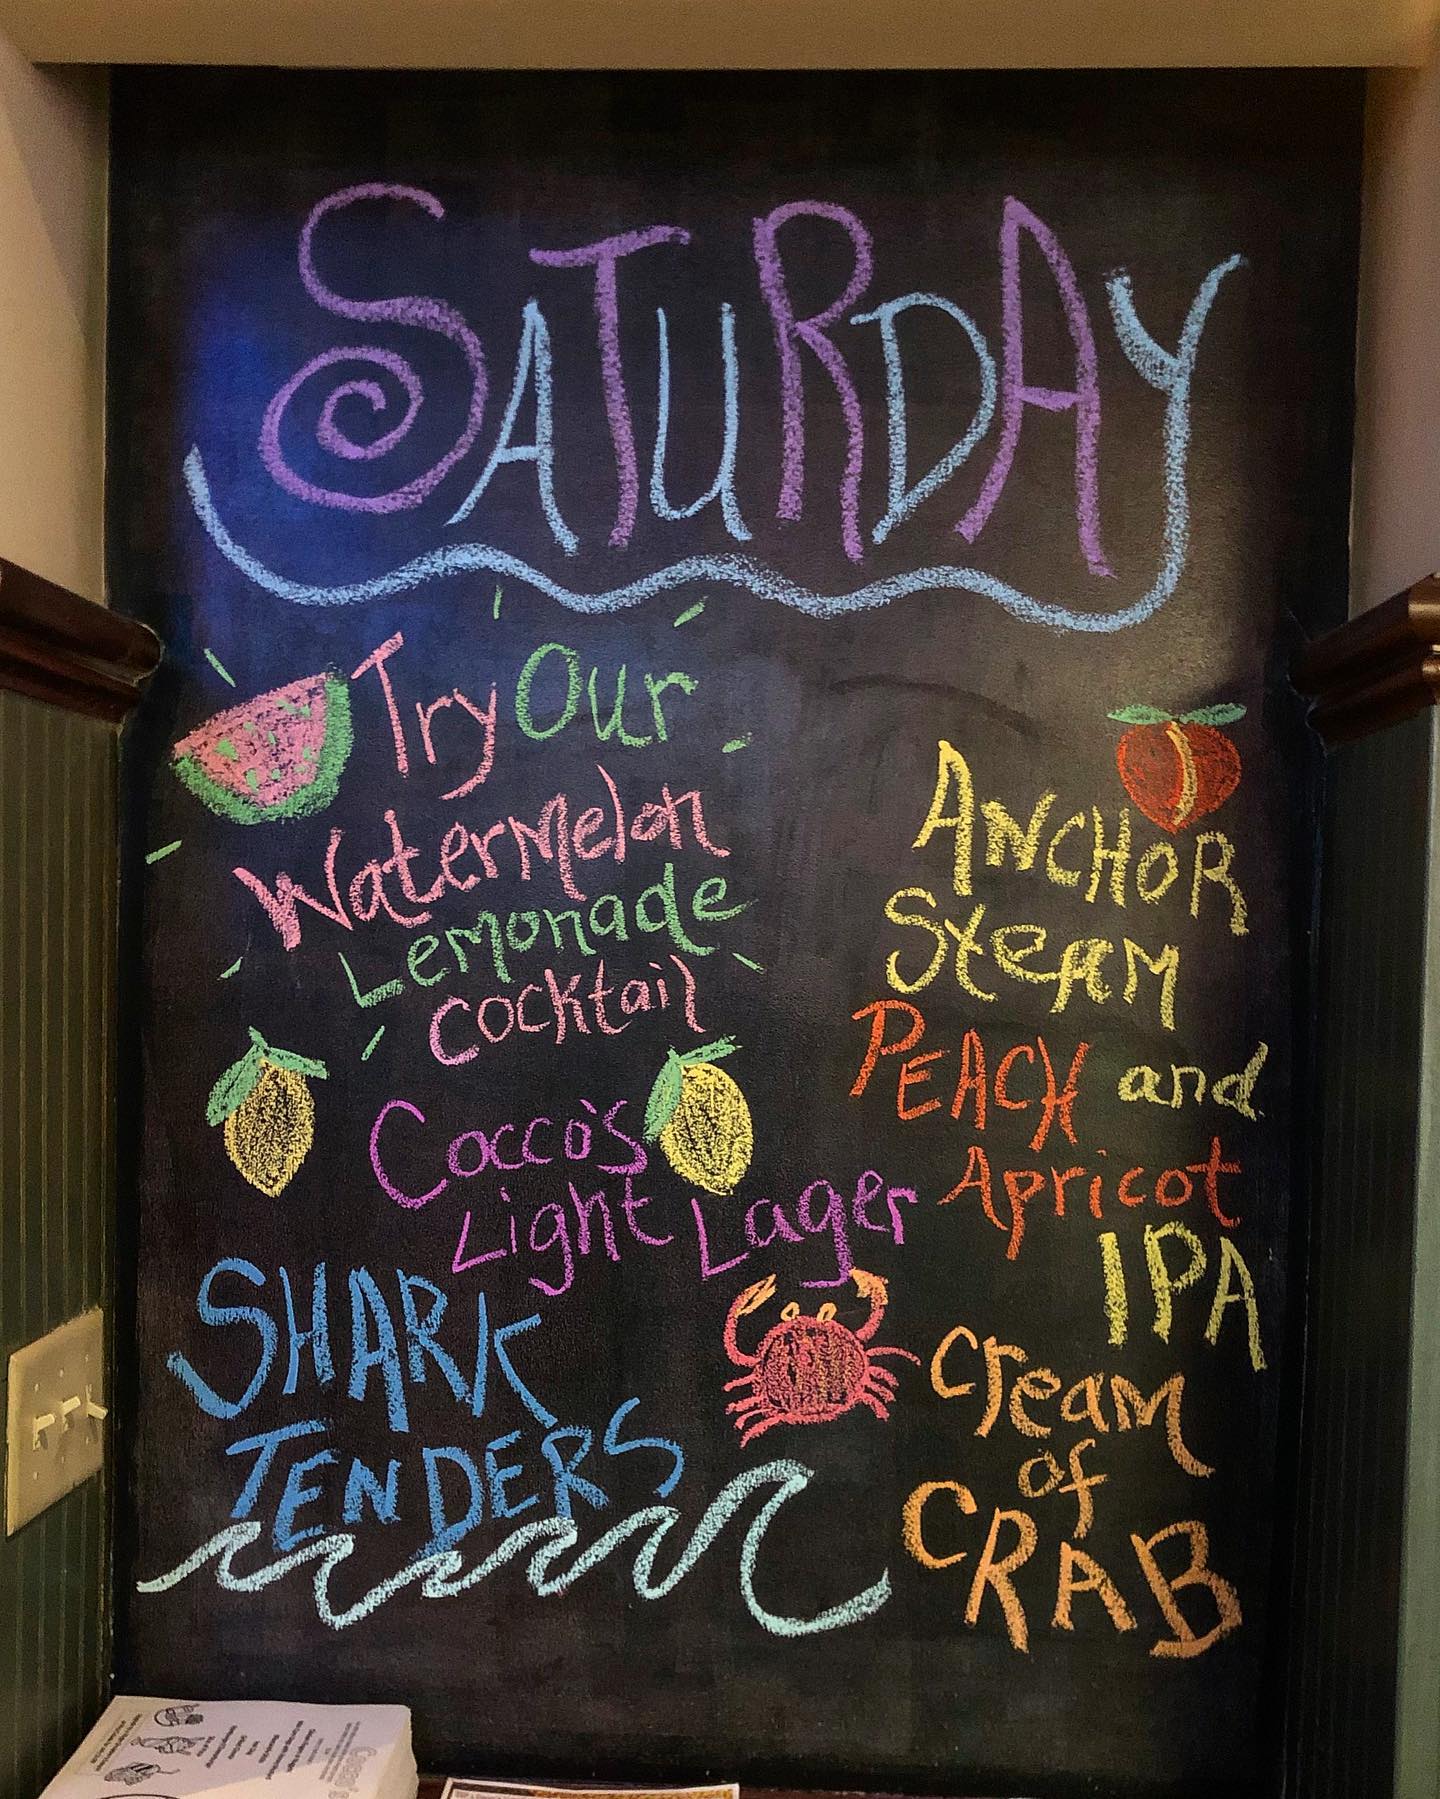 SATURDAY
Try Our
Watermelon
Lemonade
cocktail
Cocco's
Light Lager
SHARK
TENDERS
ANCHOR
Steam
PEACH and
Apricot
IPA
Cream
of
CRAB